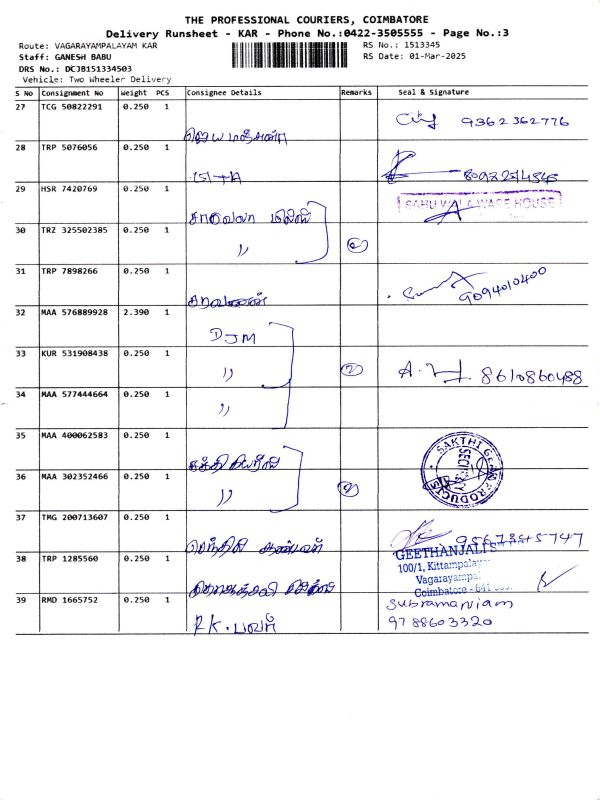 THE PROFESSIONAL COURIERS, COIMBATORE
Delivery Runsheet - KAR - Phone No.:0422-3505555 - Page No.:3
Route: VAGARAYAMPALAYAM KAR
RS No.: 1513345
Staff: GANESH BABU
RS Date: 01-Mar-2025
DRS No.: DCJB151334503
Vehicle: Two Wheeler Delivery
S No Consignment No Weight PCS Consignee Details Remarks Seal & Signature
27 TCG 50822291 0.250 1 City 9362362776
28 TRP 5076056 0.250 1
29 HSR 7420769 0.250 1 SAHUWALA WARE HOUSE
30 TRZ 325502385 0.250 1 〃
31 TRP 7898266 0.250 1 சரவணன் 9094010400
32 MAA 576889928 2.390 1 DJM
33 KUR 531908438 0.250 1 〃 8610860488
34 MAA 577444664 0.250 1 〃
35 MAA 400062583 0.250 1 SAKTHI GEAR PRODUCTS
SECURITY
36 MAA 302352466 0.250 1 〃
37 TMG 200713607 0.250 1
38 TRP 1285560 0.250 1 GEETHANJALI
100/1, Kittampalayam
Vagarayampal
Coimbatore - 641
39 RMD 1665752 0.250 1 RK. பவர் Subramaniam
9788603320